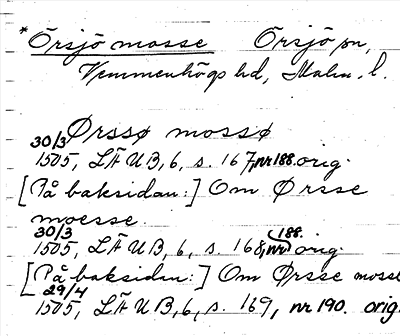 * Örsjö mosse Örsjö sn,
Vemmenhögs hd, Malm. l.
Ørssø mossø
30/3
1505, LÄUB, 6, s. 167, nr 188 orig.
[På baksidan:] Om Ørsse
moesse.
30/3 188.
1505, LÄUB, 6, s. 168, nr orig.
[På baksidan:] Om Ørsse mosse
29/4
1505, LÄUB, 6, s. 169, nr 190. orig.